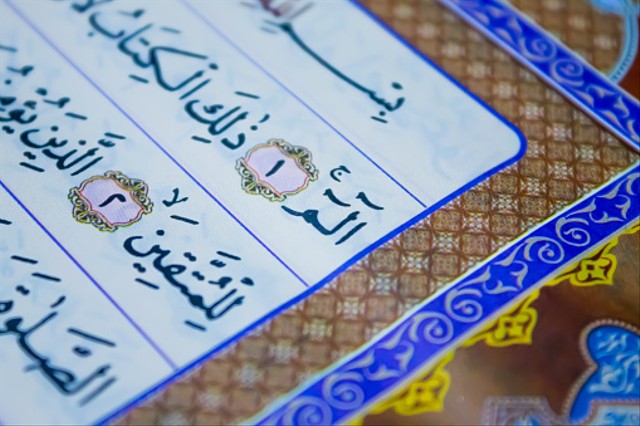 بِسْمِ اللّٰهِ
الٓمّٓ ۚ ١ ذٰلِكَ الْكِتَابُ لَا
لِلْمُتَّقِينَ ۙ ٢ الَّذِينَ
الصَّلٰوةَ